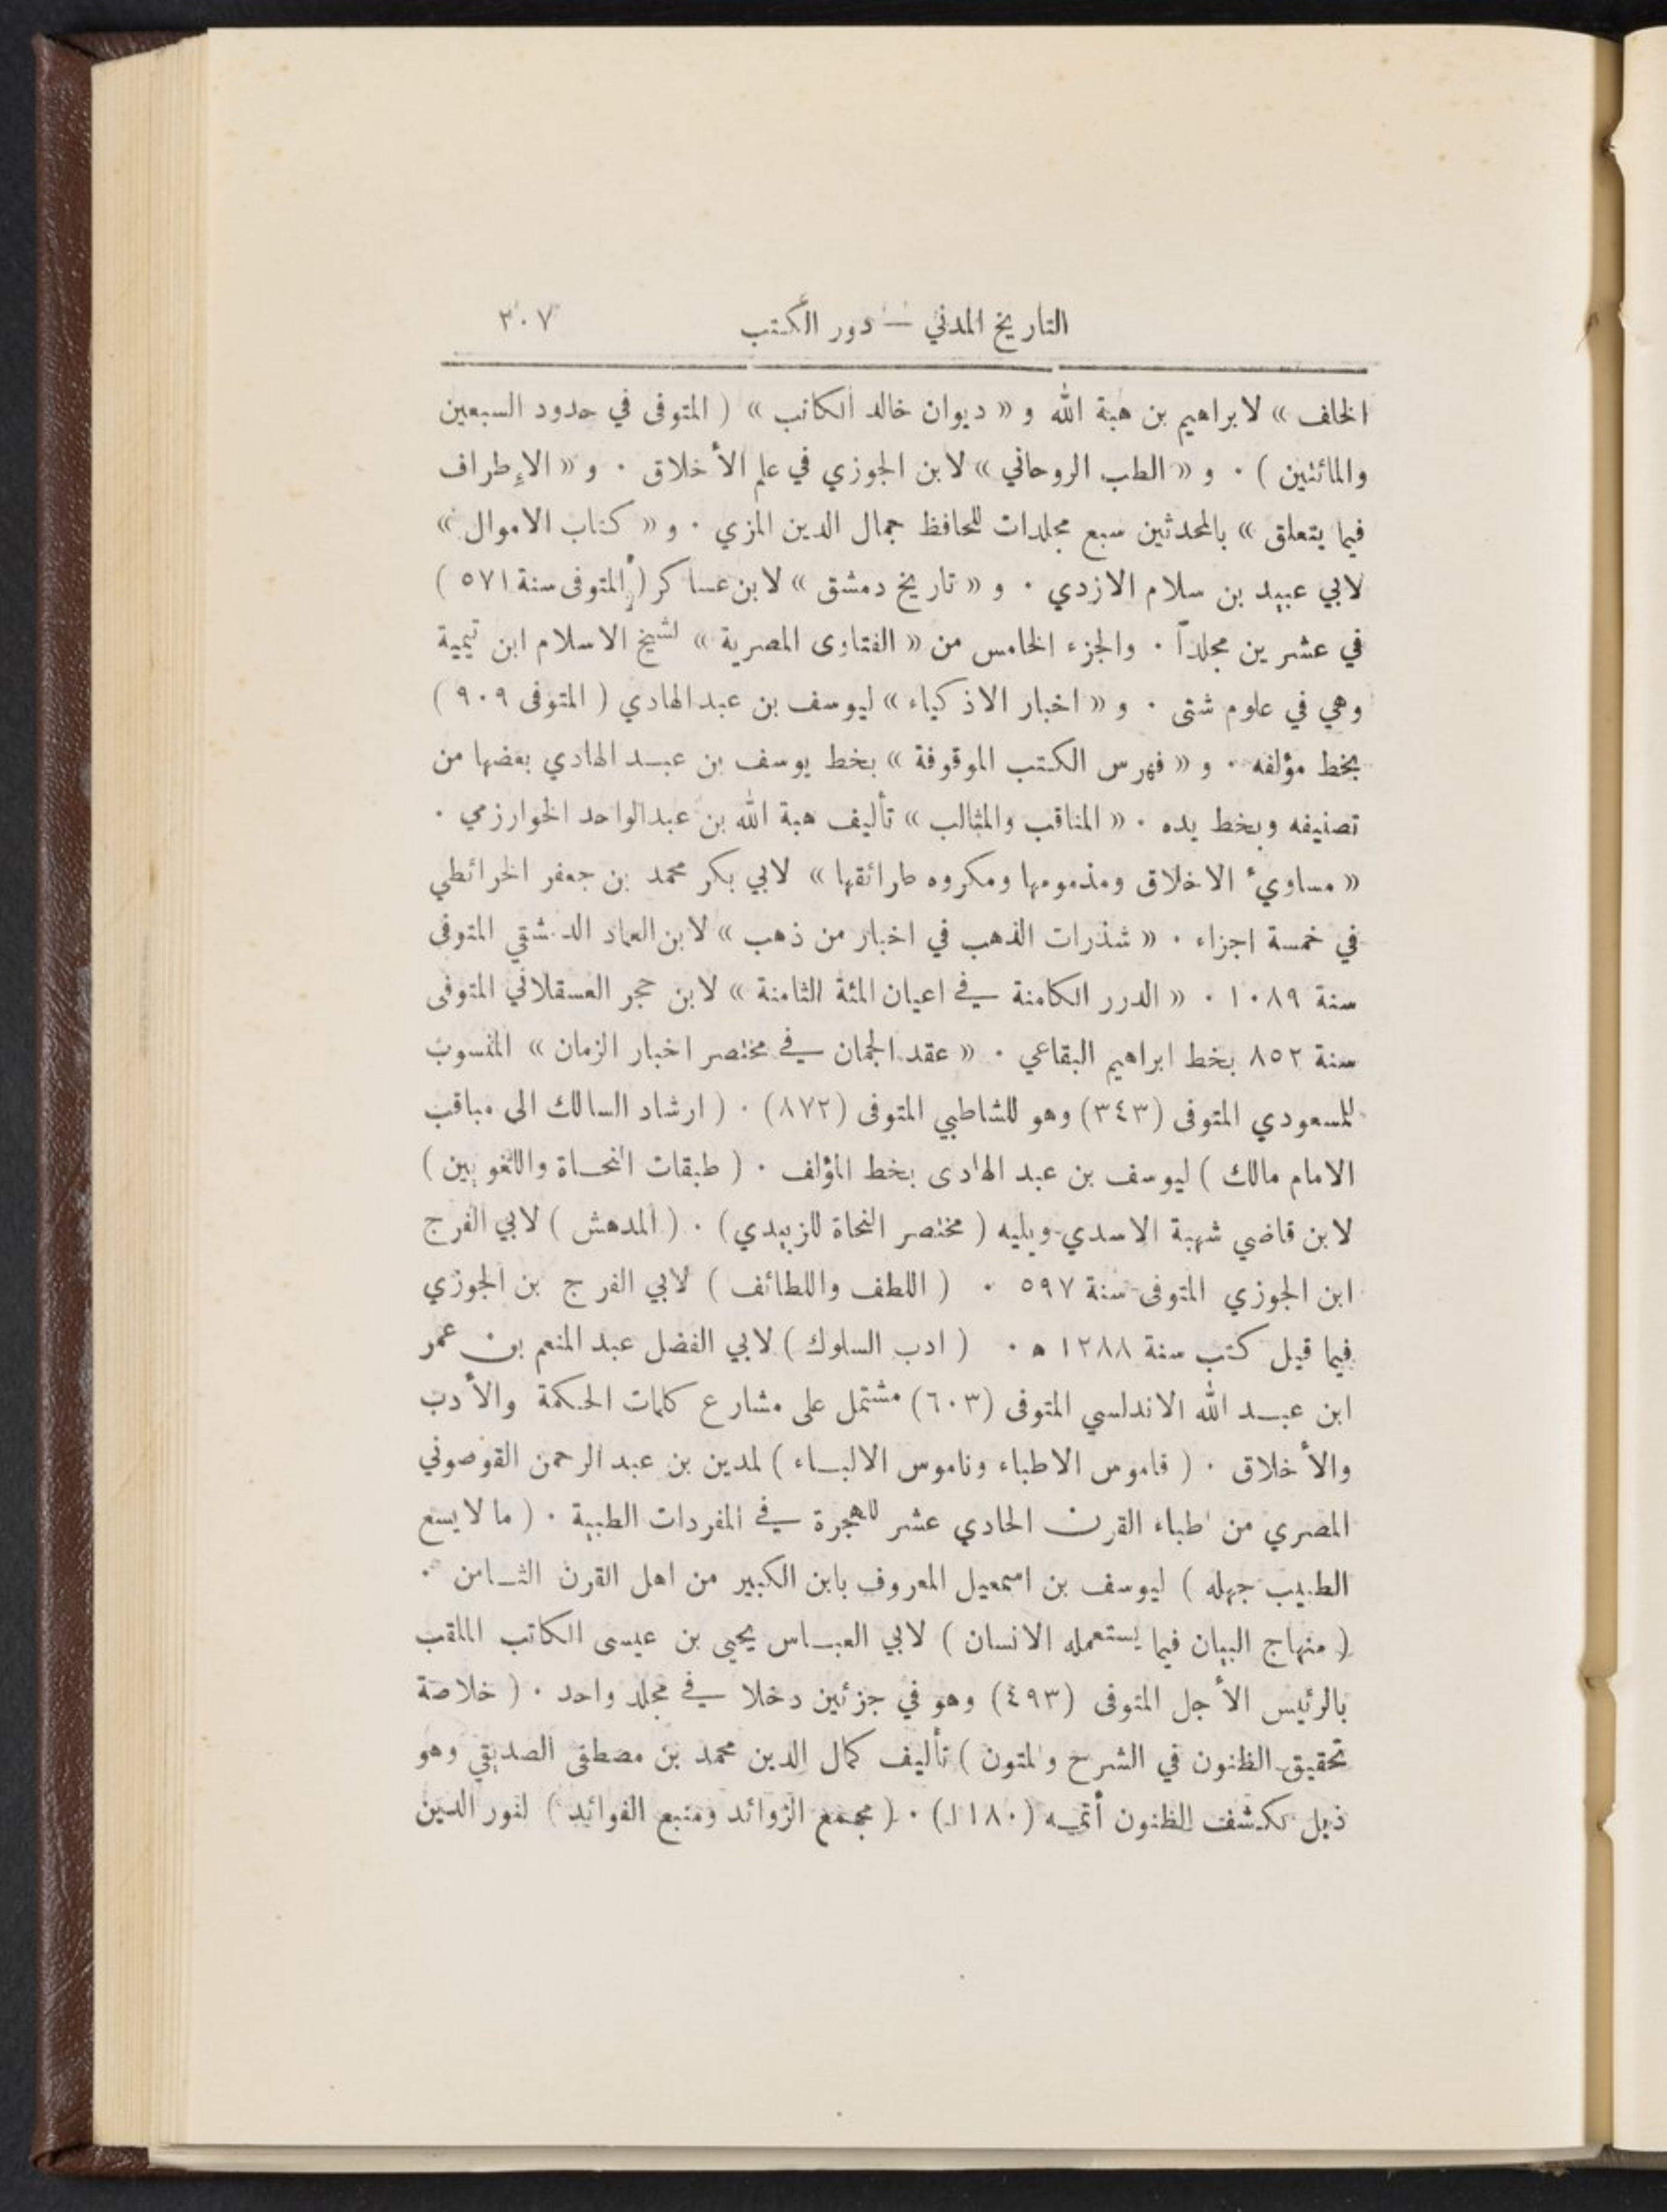 التاريخ المدني — دور الكتب ٣٠٧
الخلف » لابراهيم بن هبة الله و « ديوان خالد الكاتب » ( المتوفى في حدود السبعين
والمائتين ) ٠ و « الطب الروحاني » لابن الجوزي في علم الأخلاق ٠ و « الإطراف
فيما يتعلق » بالمحدثين سبع مجلدات للحافظ جمال الدين المزي ٠ و « كتاب الاموال »
لابي عبيد بن سلام الازدي ٠ و « تاريخ دمشق » لابن عساكر ( المتوفى سنة ٥٧١ )
في عشرين مجلداً ٠ والجزء الخامس من « الفتاوى المصرية » لشيخ الاسلام ابن تيمية
وهي في علوم شتى ٠ و « اخبار الاذكياء » ليوسف بن عبد الهادي ( المتوفى ٩٠٩ )
بخط مؤلفه ٠ و « فهرس الكتب الموقوفة » بخط يوسف بن عبد الهادي بعضها من
تصنيفه وبخط يده ٠ « المناقب والمثالب » تأليف هبة الله بن عبدالواحد الخوارزمي ٠
« مساويء الاخلاق ومذمومها ومكروه طرائقها » لابي بكر محمد بن جعفر الخرائطي
في خمسة اجزاء ٠ « شذرات الذهب في اخبار من ذهب » لابن العماد الدمشقي المتوفى
سنة ١٠٨٩ ٠ « الدرر الكامنة في اعيان المئة الثامنة » لابن حجر العسقلاني المتوفى
سنة ٨٥٢ بخط ابراهيم البقاعي ٠ « عقد الجمان في مختصر اخبار الزمان » المنسوب
للمسعودي المتوفى (٣٤٣) وهو للشاطبي المتوفى (٨٧٢) ٠ ( ارشاد السالك الى مناقب
الامام مالك ) ليوسف بن عبد الهادى بخط المؤلف ٠ ( طبقات النحاة واللغويين )
لابن قاضي شهبة الاسدي ويليه ( مختصر النحاة للزبيدي ) ٠ ( المدهش ) لابي الفرج
ابن الجوزي المتوفى سنة ٥٩٧ ٠ ( اللطف واللطائف ) لابي الفرج بن الجوزي
فيما قيل كتب سنة ١٢٨٨ ه ٠ ( ادب السلوك ) لابي الفضل عبد المنعم بن عمر
ابن عبد الله الاندلسي المتوفى (٦٠٣) مشتمل على مشارع كلمات الحكمة والأدب
والأخلاق ٠ ( قاموس الاطباء وناموس الالباء ) لمدين بن عبد الرحمن القوصوني
المصري من اطباء القرن الحادي عشر للهجرة في المفردات الطبية ٠ ( ما لا يسع
الطبيب جهله ) ليوسف بن اسمعيل المعروف بابن الكبير من اهل القرن الثامن ٠
( منهاج البيان فيما يستعمله الانسان ) لابي العباس يحيى بن عيسى الكاتب الملقب
بالرئيس الأجل المتوفى (٤٩٣) وهو في جزئين دخلا في مجلد واحد ٠ ( خلاصة
تحقيق الظنون في الشرح والمتون ) تأليف كمال الدين محمد بن مصطفى الصديقي وهو
ذيل لكشف الظنون أتمه (١١٨٠) ٠ ( مجمع الزوائد ومنبع الفوائد ) لنور الدين